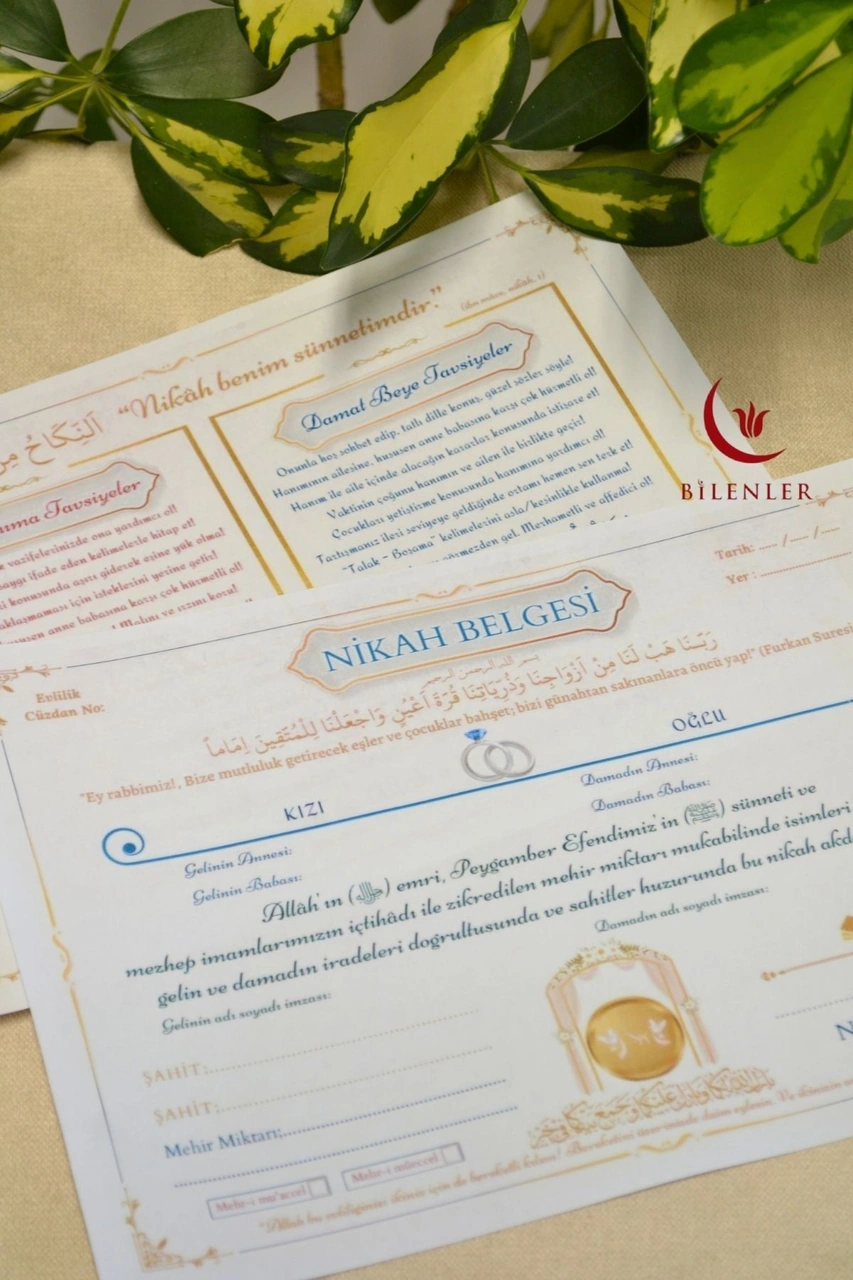 اَلنِّكَاحُ مِنْ
"Nikâh benim sünnetimdir."
(İbn mâce, nikâh, 1)
Tavsiyeler
vazifelerinizde ona yardımcı ol!
saygı ifade eden kelimelerle hitap et!
konusunda aşırı giderek eşine yük olma!
için isteklerini yerine getir!
anne babasına karşı çok hürmetli ol!
Malını ve ırzını koru!
Damat Beye Tavsiyeler
Onunla hoş sohbet edip, tatlı dille konuş, güzel sözler söyle!
Hanımının ailesine, hususen anne babasına karşı çok hürmetli ol!
Hanım ile aile içinde alacağın kararlar konusunda istişare et!
Vaktinin çoğunu hanımın ve ailen ile birlikte geçir!
Çocukları yetiştirme konusunda hanımına yardımcı ol!
Tartışmanız ileri seviyeye geldiğinde ortamı hemen sen terk et!
"Talak - Boşama" kelimelerini asla/kesinlikle kullanma!
görmezden gel. Merhametli ve affedici ol!
BİLENLER
NİKAH BELGESİ
Tarih: ---- / ---- / ----
Yer :
Evlilik
Cüzdan No:
بسم الله الرحمن الرحيم
رَبَّنَا هَبْ لَنَا مِنْ اَزْوَاجِنَا وَذُرِّيَّاتِنَا قُرَّةَ اَعْيُنٍ وَاجْعَلْنَا لِلْمُتَّقٖينَ اِمَاماً
"Ey rabbimiz!, Bize mutluluk getirecek eşler ve çocuklar bahşet; bizi günahtan sakınanlara öncü yap!" (Furkan Suresi
KIZI
OĞLU
Gelinin Annesi:
Gelinin Babası:
Damadın Annesi:
Damadın Babası:
Allâh'ın (ﷻ) emri, Peygamber Efendimiz'in (ﷺ) sünneti ve
mezhep imamlarımızın içtihâdı ile zikredilen mehir miktarı mukabilinde isimleri
gelin ve damadın iradeleri doğrultusunda ve şahitler huzurunda bu nikah akd
Gelinin adı soyadı imzası:
Damadın adı soyadı imzası:
ŞAHİT:
ŞAHİT:
Mehir Miktarı:
Mehr-i mu'accel
Mehr-i müeccel